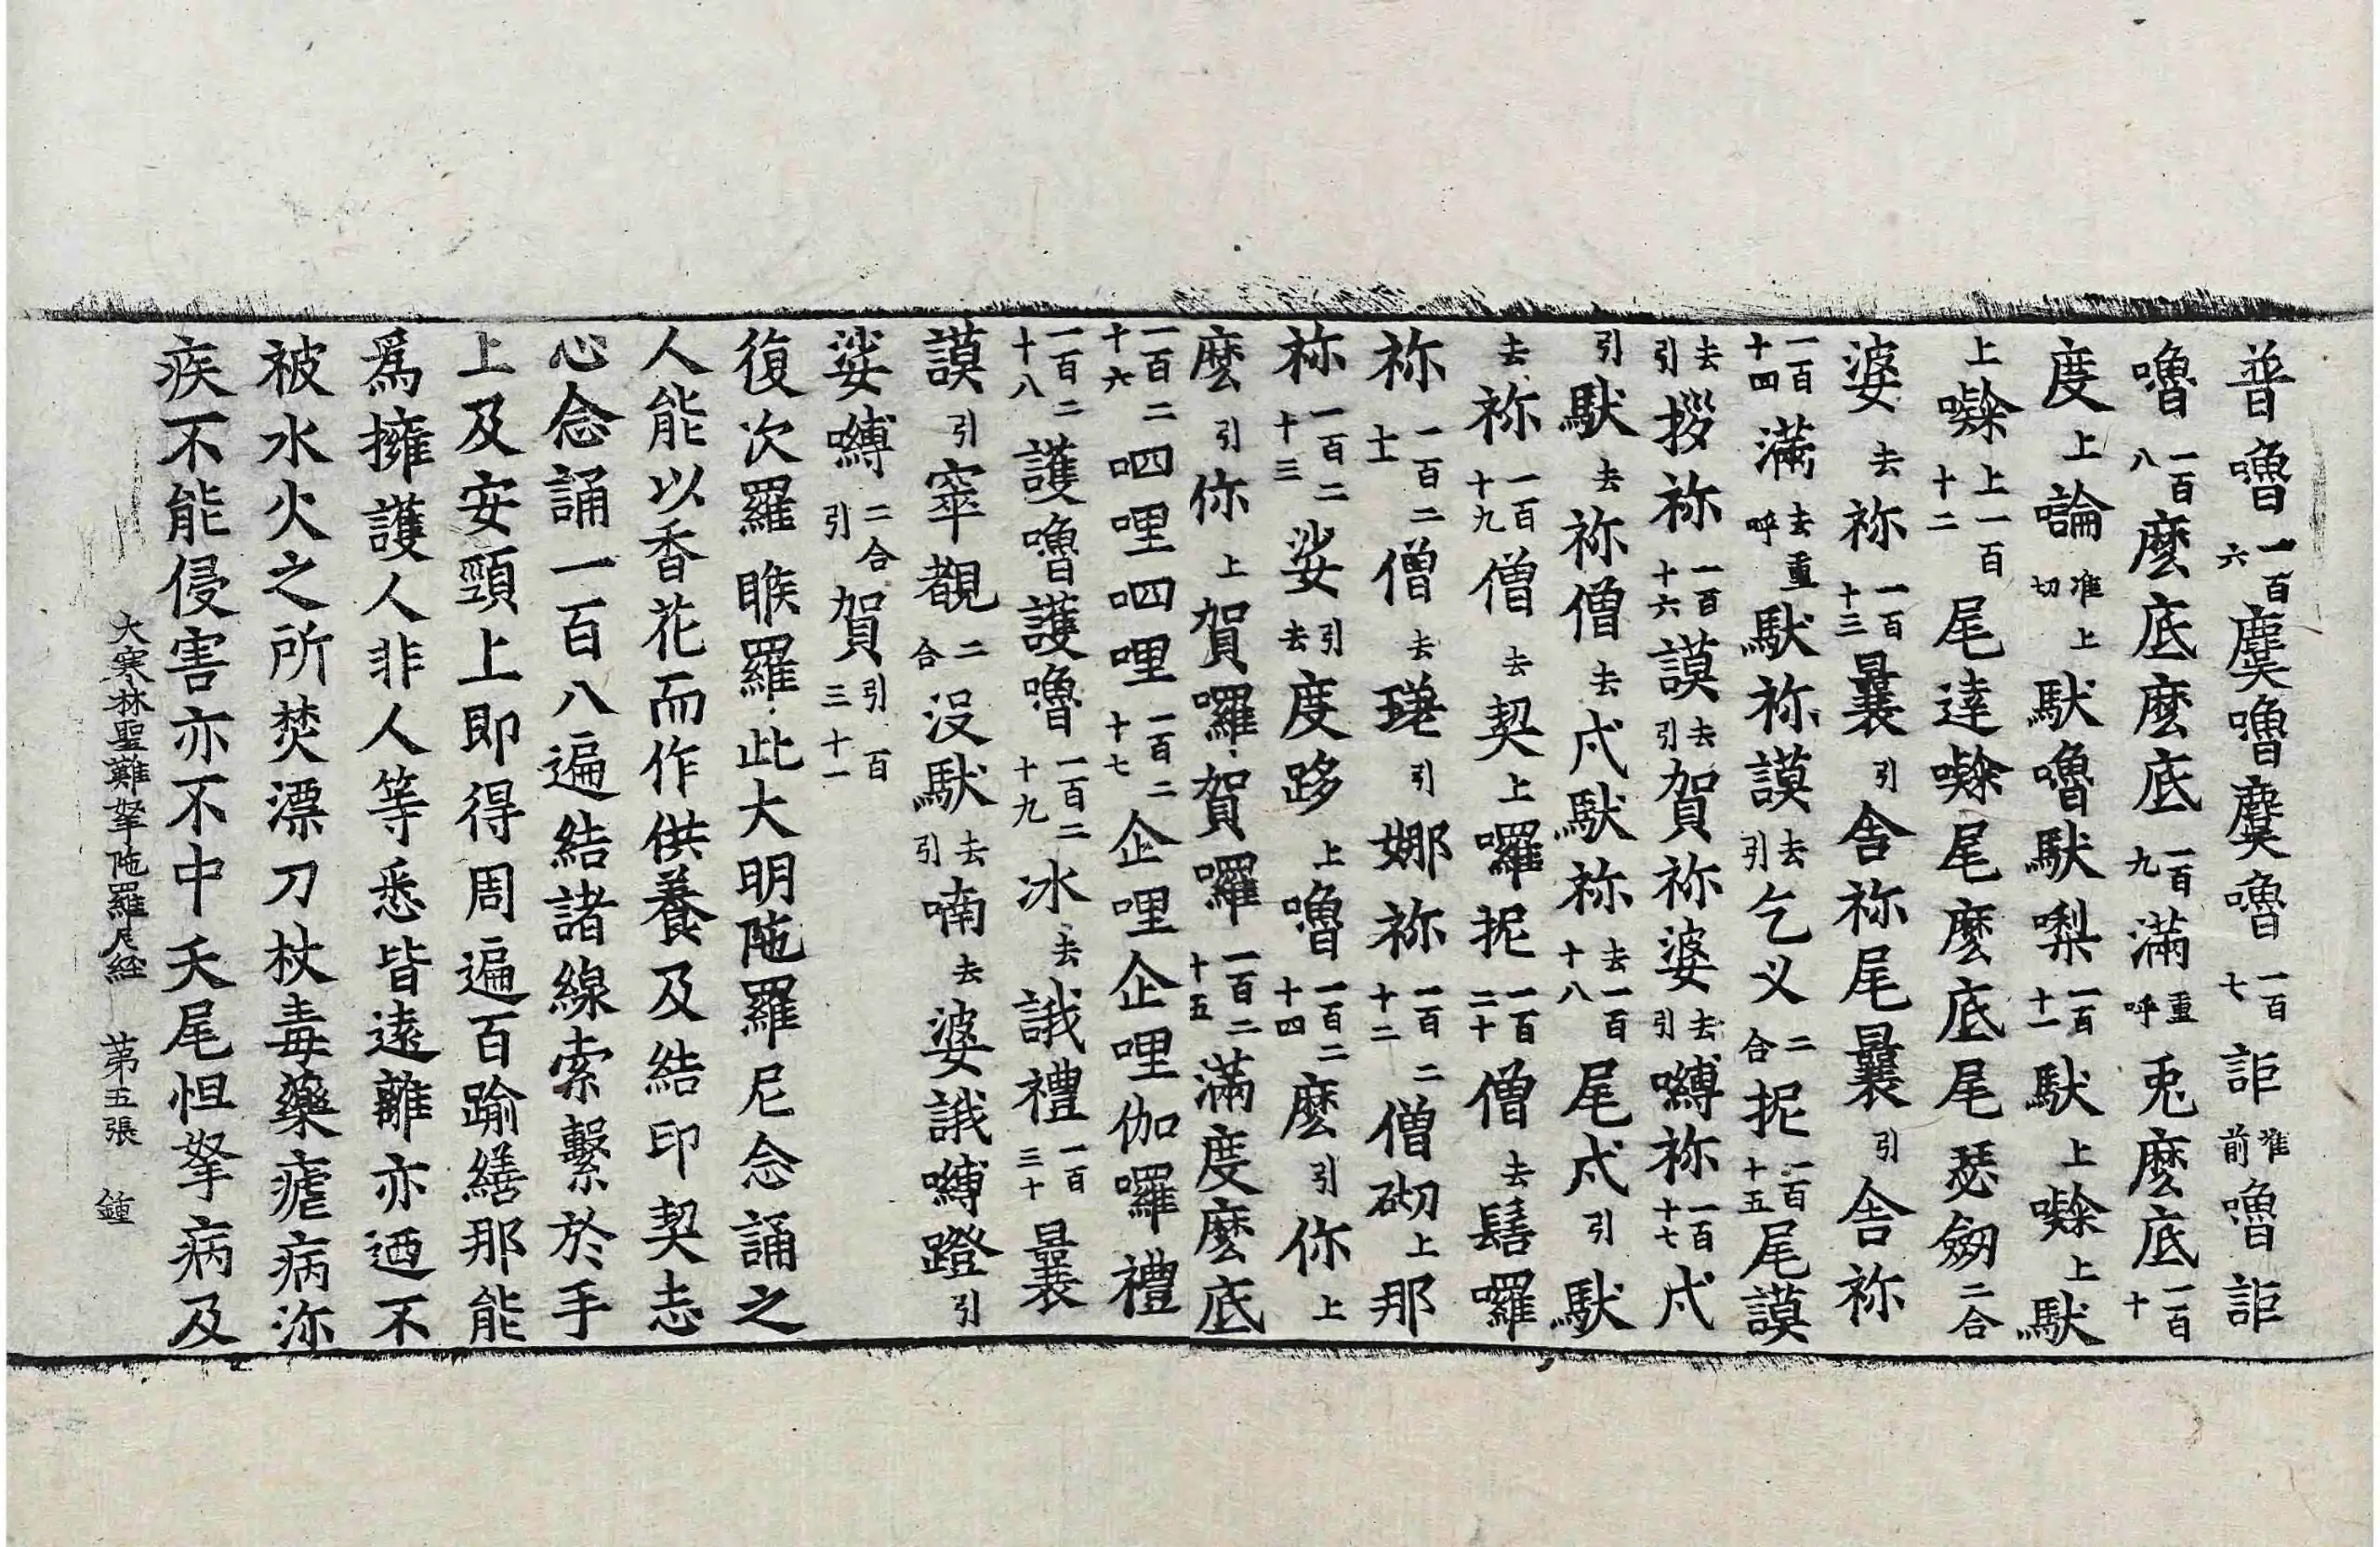 普嚕一百六麌嚕麌嚕一百七詎准前嚕詎
嚕一百八麼底麼底一百九滿重呼兎麼底一百十
度上論准上切馱嚕馱𠼝一百十一馱上㘑上馱
上㘑上一百十二尾達㘑尾麼底尾瑟劒二合
婆去祢一百十三曩引舍祢尾曩引舍祢
一百十四滿去重呼馱祢謨去引乞义二合抳一百十五尾謨
去引撥祢一百十六謨去引賀祢婆去引嚩祢一百十七戍
引馱去祢僧去戍馱祢去一百十八尾戍引馱
去祢一百十九僧去契上囉抳一百二十僧去髻囉
祢一百二十一僧去瑳引娜祢一百二十二僧砌上那
祢一百二十三娑引去度跢上嚕一百二十四麼引你上
麼引你上賀囉賀囉一百二十五滿度麼底
一百二十六呬哩呬哩一百二十七企哩企哩伽囉禮
一百二十八護嚕護嚕一百二十九冰去誐禮一百三十曩
謨引窣覩二合沒馱去引喃去婆誐嚩蹬引
娑嚩二合引賀引一百三十一
復次羅睺羅此大明陁羅尼念誦之
人能以香花而作供養及結印契志
心念誦一百八遍結諸線索繫於手
上及安頸上即得周遍百踰繕那能
爲擁護人非人等悉皆遠離亦迺不
被水火之所焚漂刀杖毒藥瘧病泝
疾不能侵害亦不中夭尾怛拏病及
大寒林聖難拏陁羅尼經　第五張　鍾